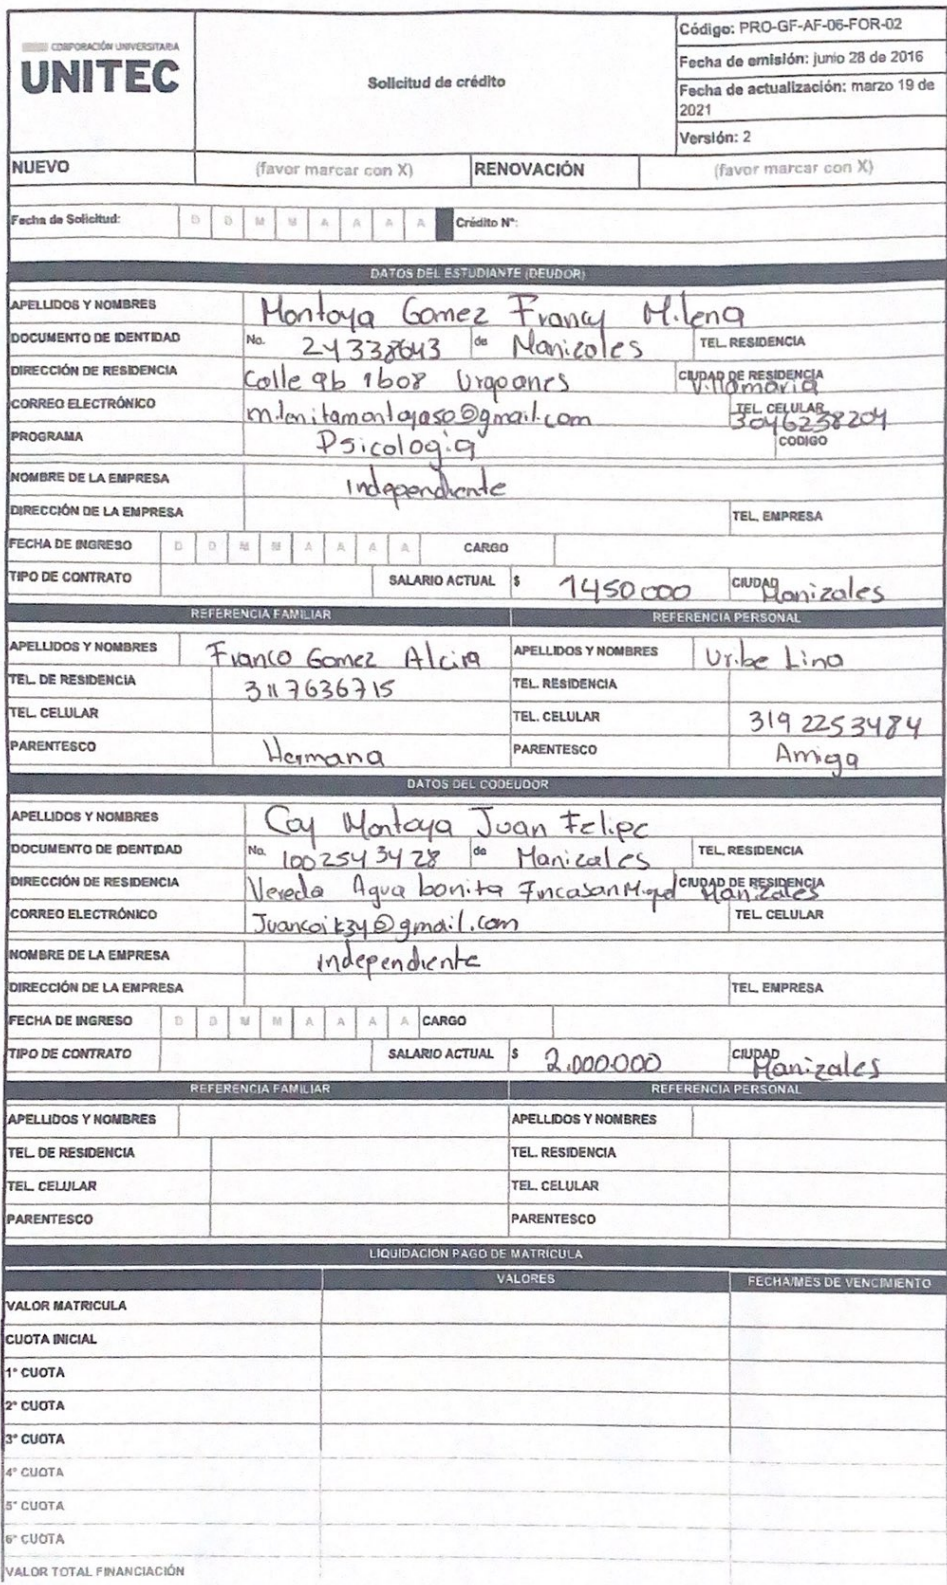 CORPORACIÓN UNIVERSITARIA
UNITEC
Solicitud de crédito
Código: PRO-GF-AF-06-FOR-02
Fecha de emisión: junio 28 de 2016
Fecha de actualización: marzo 19 de
2021
Versión: 2
NUEVO (favor marcar con X) RENOVACIÓN (favor marcar con X)
Fecha de Solicitud: D D M M A A A A Crédito N°:
DATOS DEL ESTUDIANTE (DEUDOR)
APELLIDOS Y NOMBRES Montoya Gomez Francy Milena
DOCUMENTO DE IDENTIDAD No. 24338643 de Manizales TEL. RESIDENCIA
DIRECCIÓN DE RESIDENCIA Calle 9b 1b08 Urapanes CIUDAD DE RESIDENCIA Villamaria
CORREO ELECTRÓNICO milenitamontoyaso@gmail.com TEL. CELULAR 3046238204
PROGRAMA Psicologia CODIGO
NOMBRE DE LA EMPRESA Independiente
DIRECCIÓN DE LA EMPRESA TEL. EMPRESA
FECHA DE INGRESO D D M M A A A A CARGO
TIPO DE CONTRATO SALARIO ACTUAL $ 1450.000 CIUDAD Manizales
REFERENCIA FAMILIAR REFERENCIA PERSONAL
APELLIDOS Y NOMBRES Franco Gomez Alcira APELLIDOS Y NOMBRES Uribe Lina
TEL. DE RESIDENCIA 3117636715 TEL. RESIDENCIA
TEL. CELULAR TEL. CELULAR 319 2253484
PARENTESCO Hermana PARENTESCO Amiga
DATOS DEL CODEUDOR
APELLIDOS Y NOMBRES Coy Montoya Juan Felipe
DOCUMENTO DE IDENTIDAD No. 1002543428 de Manizales TEL. RESIDENCIA
DIRECCIÓN DE RESIDENCIA Vereda Agua bonita Finca San Miguel CIUDAD DE RESIDENCIA Manizales
CORREO ELECTRÓNICO @gmail.com TEL. CELULAR
NOMBRE DE LA EMPRESA independiente
DIRECCIÓN DE LA EMPRESA TEL. EMPRESA
FECHA DE INGRESO D D M M A A A A CARGO
TIPO DE CONTRATO SALARIO ACTUAL $ 2.000.000 CIUDAD Manizales
REFERENCIA FAMILIAR REFERENCIA PERSONAL
APELLIDOS Y NOMBRES APELLIDOS Y NOMBRES
TEL. DE RESIDENCIA TEL. RESIDENCIA
TEL. CELULAR TEL. CELULAR
PARENTESCO PARENTESCO
LIQUIDACION PAGO DE MATRÍCULA
VALORES FECHA/MES DE VENCIMIENTO
VALOR MATRICULA
CUOTA INICIAL
1° CUOTA
2° CUOTA
3° CUOTA
4° CUOTA
5° CUOTA
6° CUOTA
VALOR TOTAL FINANCIACIÓN